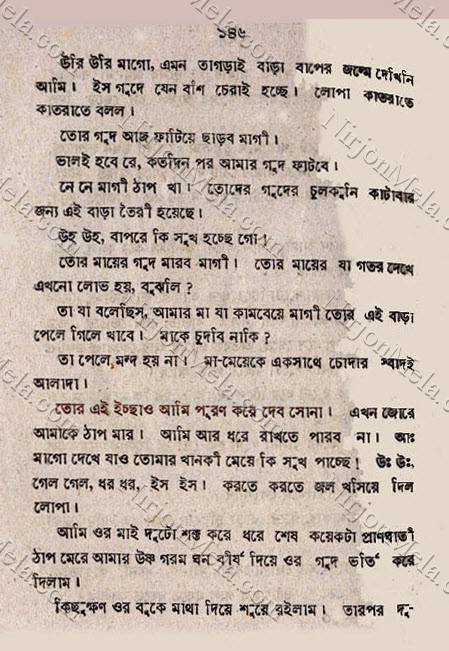 ১৪৬
উরি উরি মাগো, এমন তাগড়াই বাড়া বাপের জন্মে দেখিনি
আমি। ইস গুদে যেন বাঁশ চেরাই হচ্ছে। লোপা কাতরাতে
কাতরাতে বলল।
তোর গুদ আজ ফাটিয়ে ছাড়ব মাগী।
ভালই হবে রে, কতদিন পর আমার গুদ ফাটবে।
নে নে মাগী ঠাপ খা। তোদের গুদের চুলকুনি কাটাবার
জন্য এই বাড়া তৈরী হয়েছে।
উহ উহ, বাপরে কি সুখ হচ্ছে গো!
তোর মায়ের গুদ মারব মাগী। তোর মায়ের যা গতর দেখে
এখনো লোভ হয়, বুঝলি?
তা যা বলেছিস, আমার মা যা কামবেয়ে মাগী তোর এই বাড়া
পেলে গিলে খাবে। মাকে চুদবি নাকি?
তা পেলে মন্দ হয় না। মা-মেয়েকে একসাথে চোদার স্বাদই
আলাদা।
তোর এই ইচ্ছাও আমি পূরণ করে দেব সোনা। এখন জোরে
আমাকে ঠাপ মার। আমি আর ধরে রাখতে পারব না। আঃ
মাগো দেখে যাও তোমার খানকী মেয়ে কি সুখ পাচ্ছে! উঃ উঃ,
গেল গেল, ধর ধর, ইস ইস। করতে করতে জল খসিয়ে দিল
লোপা।
আমি ওর মাই দুটো শক্ত করে ধরে শেষ কয়েকটা প্রাণঘাতী
ঠাপ মেরে আমার উষ্ণ গরম ঘন বীর্য দিয়ে ওর গুদ ভর্তি করে
দিলাম।
কিছুক্ষণ ওর বুকে মাথা দিয়ে শুয়ে রইলাম। তারপর দু-
NirjonMela.com